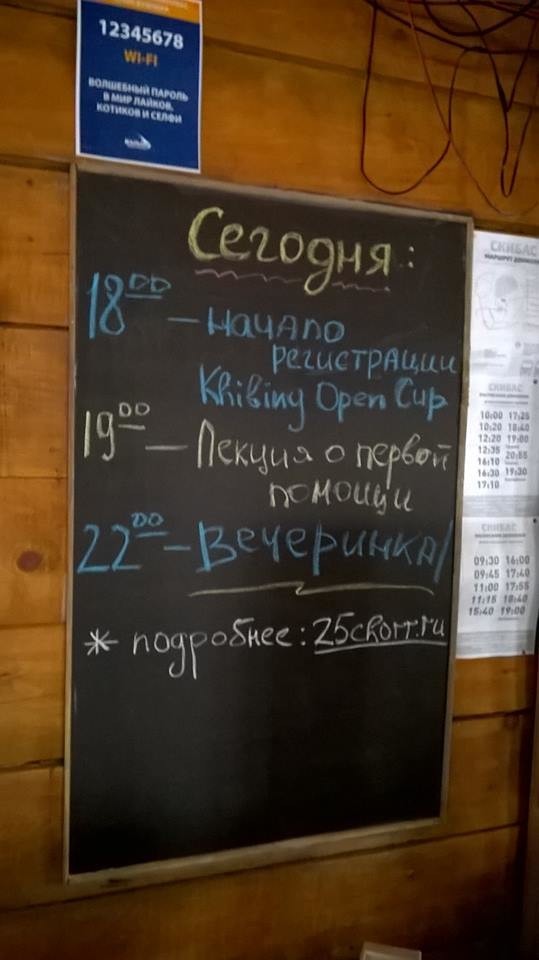 12345678
WI-FI
ВОЛШЕБНЫЙ ПАРОЛЬ
В МИР ЛАЙКОВ,
КОТИКОВ И СЕЛФИ
Сегодня:
18 00 – начало
регистрации
Khibiny Open Cup
19 00 – Лекция о первой
помощи
22 00 – Вечеринка!
* подробнее: 25ckorr.ru
СКИБАС
МАРШРУТ ДВИЖЕНИЯ
СКИБАС
10:00 17:25
10:20 18:40
12:20 19:00
12:35 20:55
16:10 19:30
16:30
17:10
СКИБАС
09:30 16:00
09:45 17:40
11:00 17:55
11:15 18:40
15:40 19:00